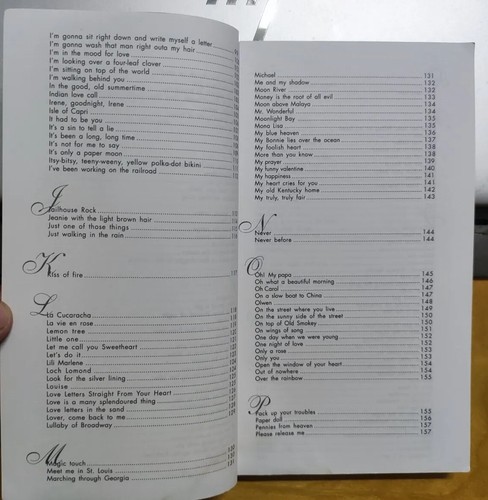 I'm gonna sit right down and write myself a letter
I'm gonna wash that man right outa my hair
I'm in the mood for love
I'm looking over a four-leaf clover
I'm sitting on top of the world
I'm walking behind you
In the good, old summertime
Indian love call
Irene, goodnight, Irene
Isle of Capri
It had to be you
It's a sin to tell a lie
It's been a long, long time
It's not for me to say
It's only a paper moon
Itsy-bitsy, teeny-weeny, yellow polka-dot bikini
I've been working on the railroad
J
Jailhouse Rock
Jeanie with the light brown hair
Just one of those things
Just walking in the rain
K
Kiss of fire
L
La Cucaracha
La vie en rose
Lemon tree
Little one
Let me call you Sweetheart
Let's do it
Lili Marlene
Loch Lomond
Look for the silver lining
Louise
Love Letters Straight From Your Heart
Love is a many splendoured thing
Love letters in the sand
Lover, come back to me
Lullaby of Broadway
M
Magic touch
Meet me in St. Louis
Marching through Georgia
Michael 131
Me and my shadow 132
Moon River 132
Money is the root of all evil 133
Moon above Malaya 134
Mr. Wonderful 134
Moonlight Bay 135
Mona Lisa 135
My blue heaven 136
My Bonnie lies over the ocean 137
My foolish heart 138
More than you know 138
My prayer 139
My funny valentine 140
My happiness 141
My heart cries for you 141
My old Kentucky home 142
My truly, truly fair 143
N
Never 144
Never before 144
O
Oh! My papa 145
Oh what a beautiful morning 146
Oh Carol 147
On a slow boat to China 147
Olwen 148
On the street where you live 149
On the sunny side of the street 150
On top of Old Smokey 150
On wings of song 151
One day when we were young 152
One night of love 152
Only a rose 153
Only you 153
Open the window of your heart 154
Out of nowhere 154
Over the rainbow 155
P
Pack up your troubles 155
Paper doll 156
Pennies from heaven 157
Please release me 157